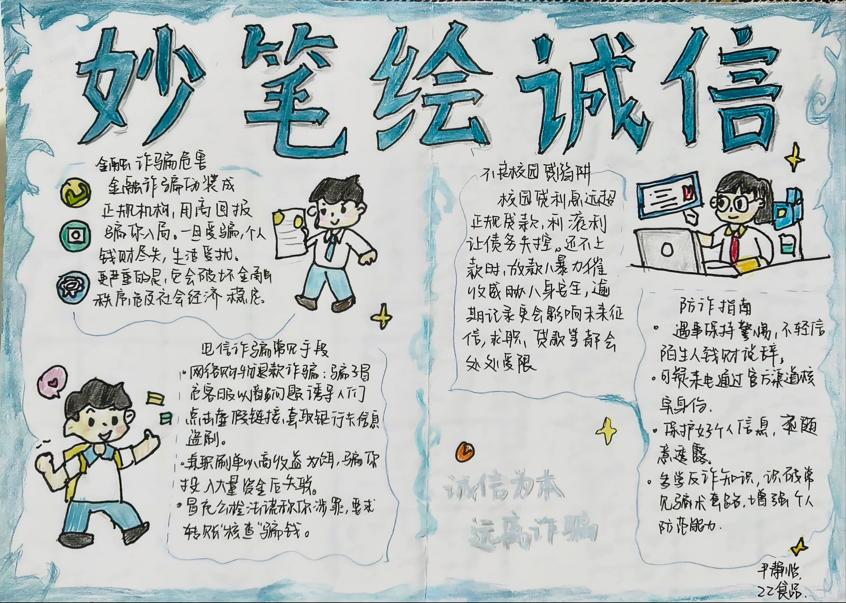 妙笔绘诚信
金融诈骗危害
金融诈骗伪装成
正规机构，用高回报
骗你入局。一旦受骗，个人
钱财尽失，生活受扰。
更严重的是，它会破坏金融
秩序，危及社会经济稳定。
电信诈骗常见手段
·网络购物退款诈骗：骗子冒
充客服以商品问题诱导人们
点击虚假链接，套取银行卡信息
盗刷。
·兼职刷单以高收益为饵，骗你
投入大量资金后失联。
·冒充公检法谎称你涉罪，要求
转账"核查"骗钱。
不良校园贷陷阱
校园贷利息远超
正规贷款，利滚利
让债务失控。还不上
款时，放款人暴力催
收威胁人身安全，逾
期记录更会影响未来征
信，求职、贷款等都会
处处受限
诚信为本
远离诈骗
防诈指南
·遇事保持警惕，不轻信
陌生人钱财说辞。
·可疑来电通过官方渠道核
实身份。
·保护好个人信息，不随
意透露。
·多学反诈知识，识破常
见骗术套路，增强个人
防范能力.
尹静怡.
22食品.